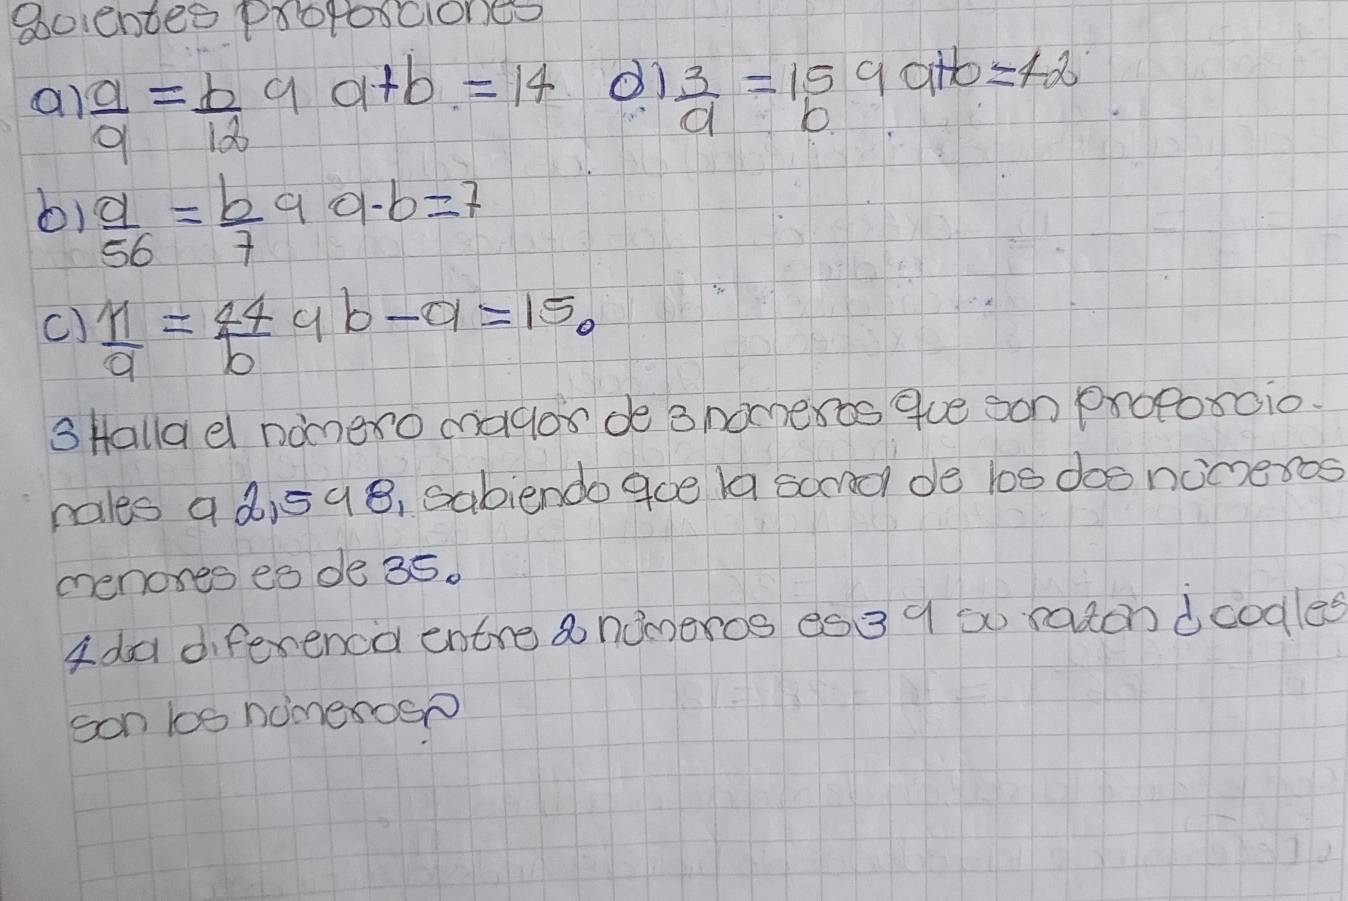 guientes proporciones
a) a/9 = b/12 y a+b = 14 d) 3/a = 15/b y a+b = 42
b) a/56 = b/7 y a-b=7
c) 11/a = 44/b y b-a=15.
3 Halla el número mayor de 3 números que son proporcio-
nales a 2,5 y 8, sabiendo que la suma de los dos números
menores es de 35.
4 La diferencia entre 2 números es 3 y su razon ¿cuales
son los números?